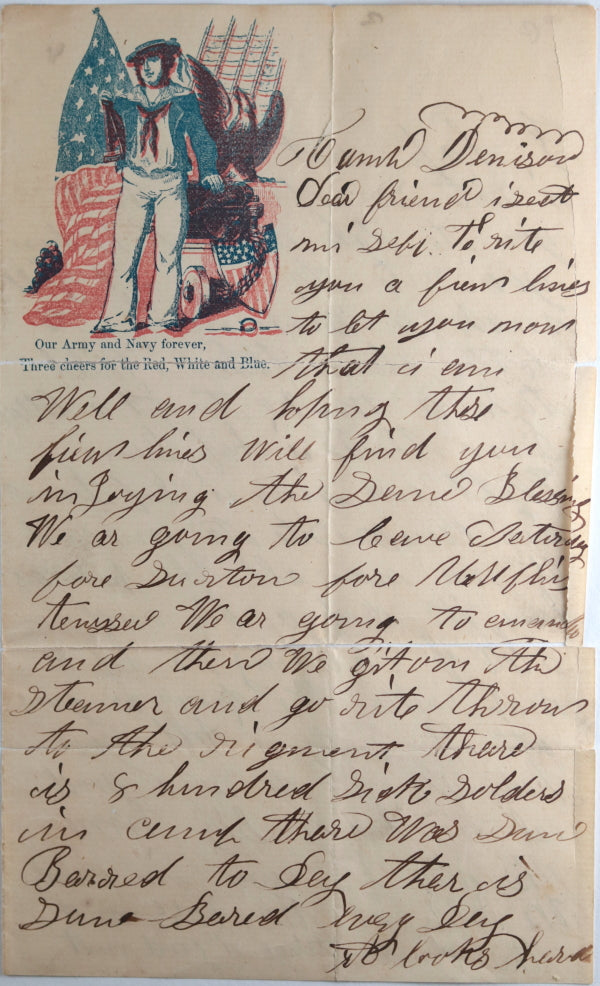 Our Army and Navy forever,
Three cheers for the Red, White and Blue.
Camp Denison
Dear friend i seet
mi self to rite
you a fiew lines
to let you now
that i am
Well and hoping these
fiew lines will find you
in Joying the Same Blessing
We ar going to leave Saturday
fore
fore
We ar going to
and then We git on the
Steamer and go rite throw
to the rigment thare
is 8 hundred Sick Solders
in camp thare Was
Barred to Dey thar is
Bared every Dey
it looks hard